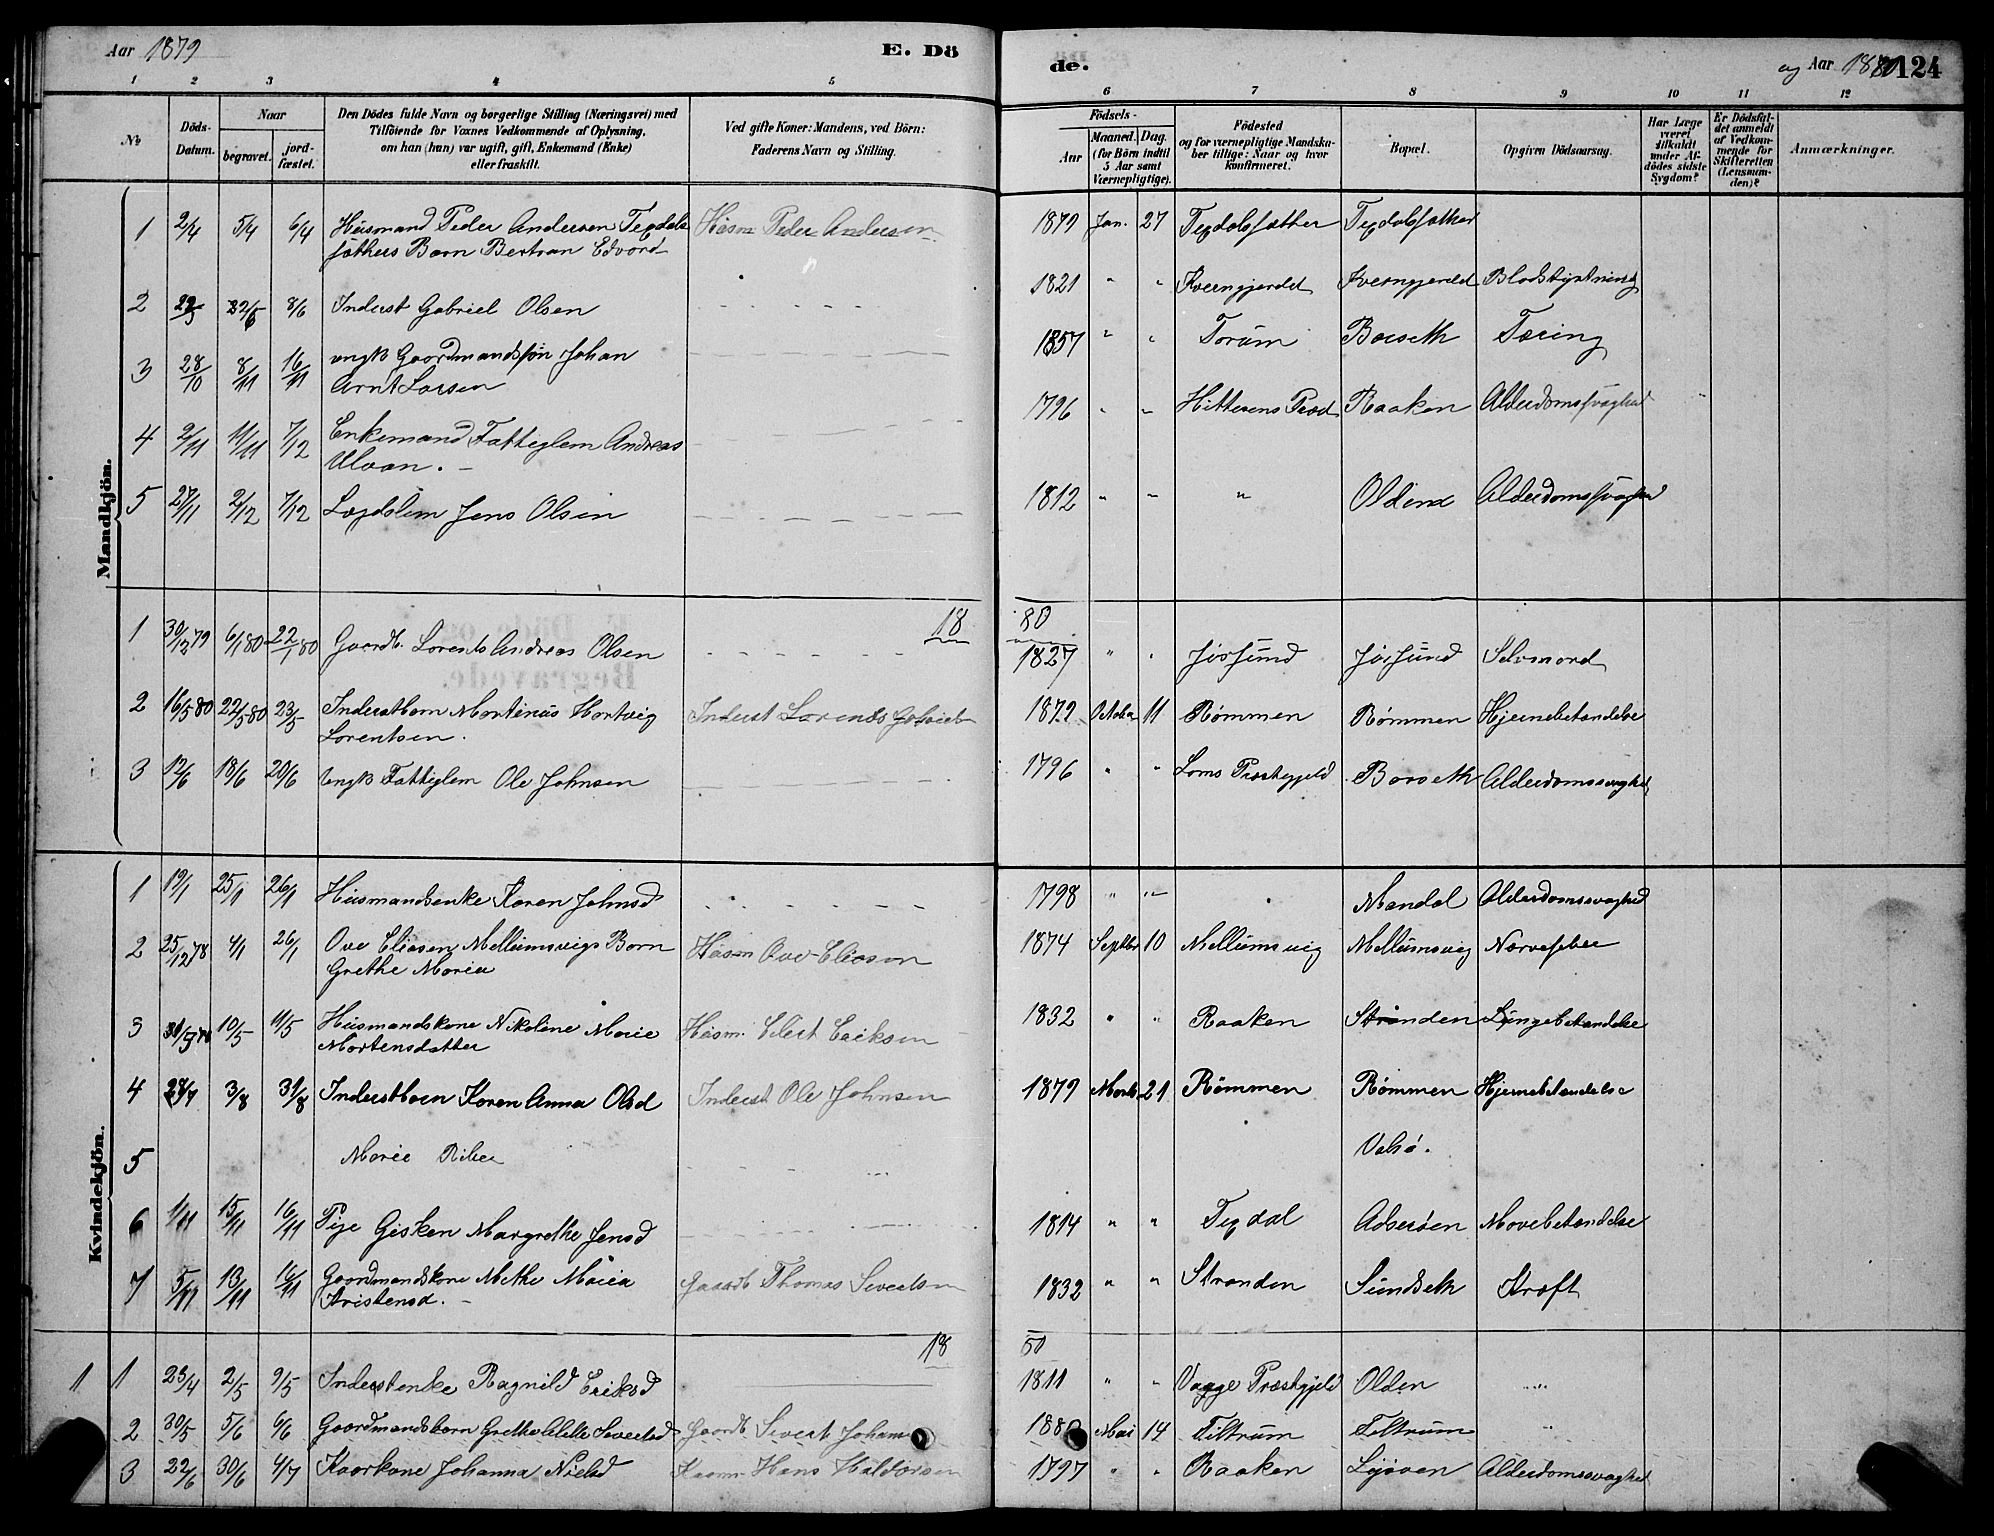 Aar 1879
E. Dö
de.
og Aar 1880
124
1 2 3 4 5 6 7 8 9 10 11 12
No
Döds-Datum.
Naar
begravet.
jord-fæstet.
Den Dödes fulde Navn og borgerlige Stilling (Næringsvei) med
Tilföiende for Voxnes Vedkommende af Oplysning,
om han (hun) var ugift, gift, Enkemand (Enke)
eller fraskilt.
Ved gifte Koner: Mandens, ved Börn:
Faderens Navn og Stilling.
Födsels-
Aar
Maaned. Dag.
(for Börn indtil
5 Aar samt
Værnepligtige).
Födested
og for værnepligtige Mandska-
ber tillige: Naar og hvor
konfirmeret.
Bopæl.
Opgiven Dödsaarsag.
Har Læge
været
tilkaldt
under Af-
dödes sidste
Sygdom?
Er Dödsfal-
det anmeldt
af Vedkom-
mende for
Skifteretten
(Lensman-
den)?
Anmærkninger.
Mandkjön.
1 2/4 5/4 6/4 Husmand Peder Andersen Tegdals Husm Peder Andersen 1879 Jan. 27 Tegdalsæther Tegdalsæther
sæthers Barn Bertran Edvard
2 22/6 8/6 Inderst Gabriel Olsen 1821 " " Kverngjerdet Kverngjerdet Blodstyrtning
3 28/10 8/11 16/11 ungk Gaardmandssøn Johan 1857 " " Torum Borseth Tæring
Arnt Larsen
4 2/11 11/11 7/12 Enkemand Fattiglem Andreas 1796 " " Hitterens Præd Raaken Alderdomssvaghed
Ulvan.
5 27/11 2/12 7/12 Lægdslem Jens Olsen 1812 " " " Olden Alderdomssvaghed
18 80
1 30/12 79 6/1 80 22/1 80 Gaardb. Lorents Andreas Olsen 1827 " " Jøssund Jøssund Selvmord
2 16/5 80 22/5 80 23/5 Inderstbarn Martinus Hartvig Inderst Lorents Gabriels 1879 October 11 Rømmen Rømmen Hjernebetændelse
Lorentsen.
3 12/6 18/6 20/6 Ungk Fattiglem Ole Johnsen 1796 " " Loms Præstegjeld Borseth Alderdomssvaghed
Kvindekjön.
1 19/1 25/1 26/1 Husmandsenke Karen Johnsd 1798 " " Mandal Alderdomssvaghed
2 25/12 78 4/1 26/1 Ove Eliasen Mellumsvigs Barn Husm Ove Eliasen 1874 Septbr 10 Mellumsvig Mellumsvig Nervefeber
Grethe Maria
3 10/5 11/5 Husmandskone Nikoline Marie Husm. Eilert Eriksen 1832 " " Raaken Stranden Lungebetændelse
Mortensdatter
4 28/7 3/8 31/8 Inderstbarn Karen Anna Olsd Inderst Ole Johnsen 1879 Marts 21 Rømmen Rømmen Hjernebetændelse
5 Marie Riber Valsø.
6 1/11 15/11 16/11 Pige Gisken Margrethe Jensd 1814 " " Tegdal Adserøen Mavebetændelse
7 5/11 13/11 16/11 Gaardmandskone Methe Maria Gaardb Thomas Sivertsen 1832 " " Stranden Sundseth Kræft
Kristensd.
18 80
1 1 23/4 2/5 9/5 Inderstenke Ragnild Eriksd 1811 " " Vaage Præstegjeld Olden
2 30/5 5/6 6/6 Gaardmandsbarn Grethe Sivertsd Gaardb Sivert Johans 188 Mai 14 Feltrum Feltrum
3 22/6 30/6 4/7 Kaarkone Johanna Nielsd Kaarm Hans Haldorsen 1797 " " Raaken Alderdomssvaghed